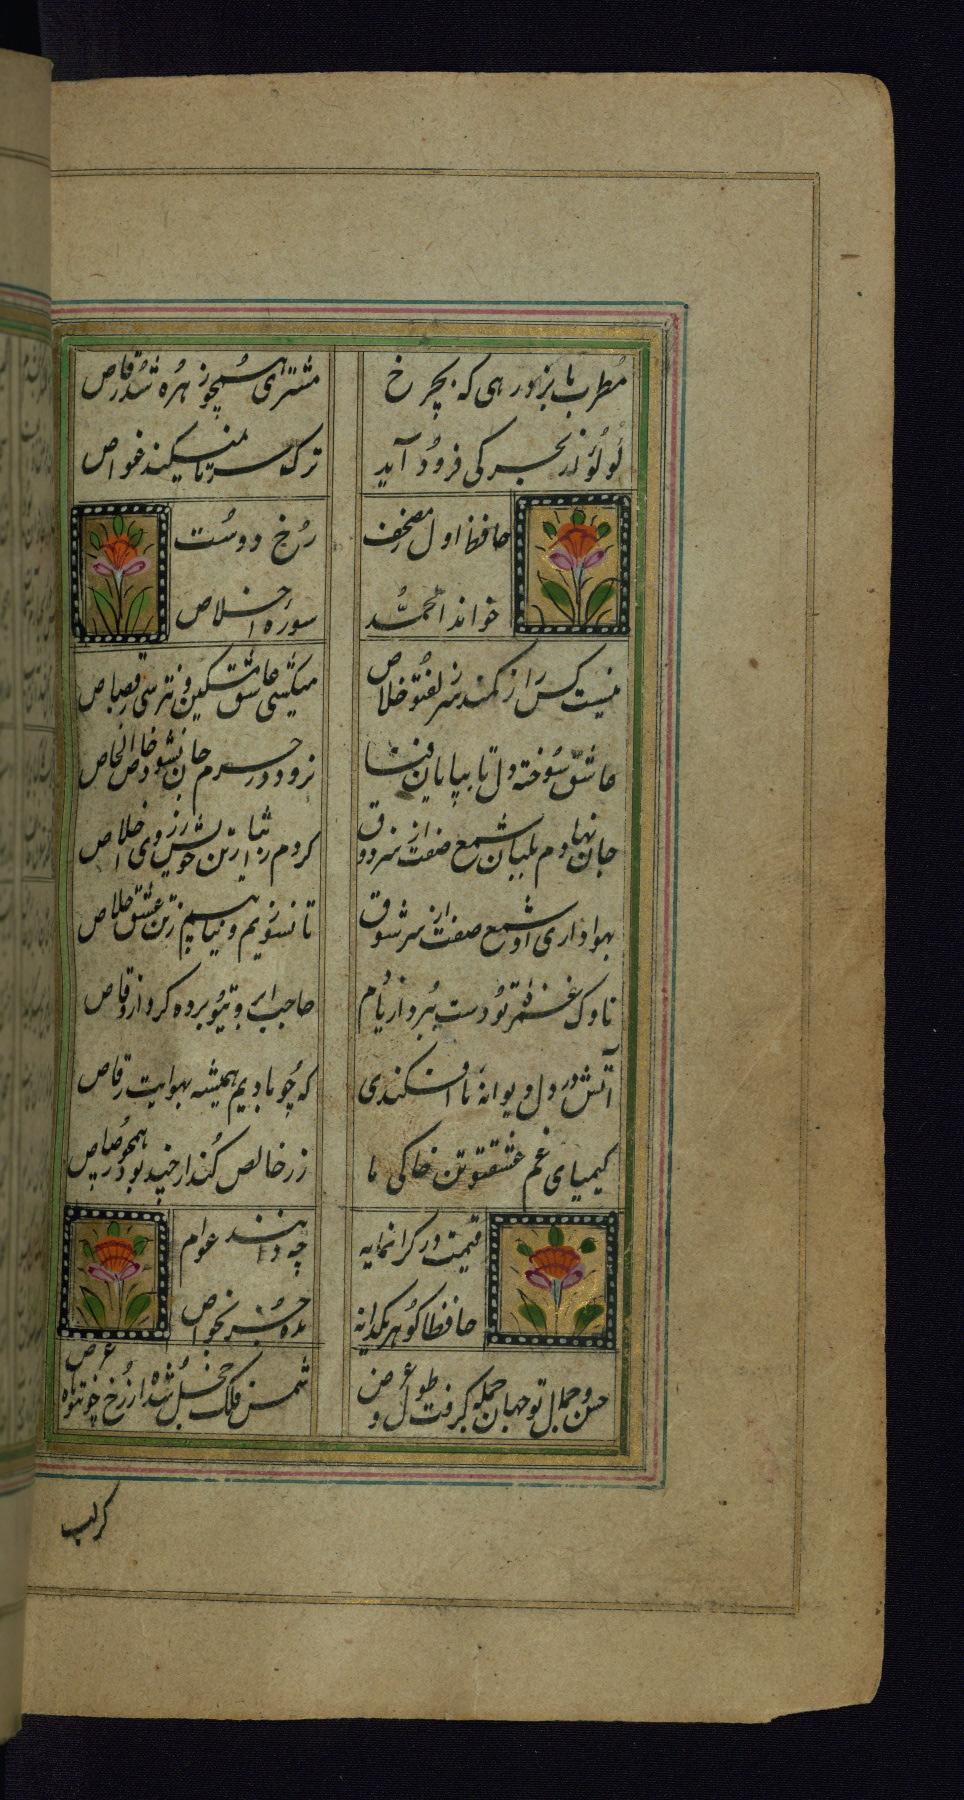 مُطرب ما بزد رهی که بچرخ
مشتری همچو زهره شد رقاص
لُولُو از بحر کی فرود آید
ترک سر تا نمیکند غواص
حافظ اول ز مصحف
رُخ دوست
خواند الحمدُ
سورهٔ اخلاص
نیست کس را ز کمند سر زلف تو خلاص
میکشی عاشق مسکین و نترسی ز قصاص
عاشق سُوخته دل تا ببیابان فنا
نرود در حرم جان نشود خاص الخاص
جان نهادم بمیان شمع صفت از سر ذوق
کردم ایثار تن خویش ز روی اخلاص
بهواداری او شمع صفت از سر شوق
تا نسوزیم و نیابیم ز تن عشق خلاص
ناوک غمزهٔ تو دست ببرد از
حاجب ابروی تو برده کرو از وقاص
آتش در دل دیوانهٔ ما افکندی
که چو بادیم همیشه بهوایت رقاص
کیمیای غم عشق تو تن خاکی ما
زر خالص کُند ار چند بود همچو رصاص
قیمت در گرانمایه
چه دانند عوام
حافظا گوهر یکدانه
مده جُز بخواص
حسن و جمال تو جهان جمله گرفت طول و عرض
شمس فلک خجل شده از رُخ خوب تو ماه عرض
کز لب